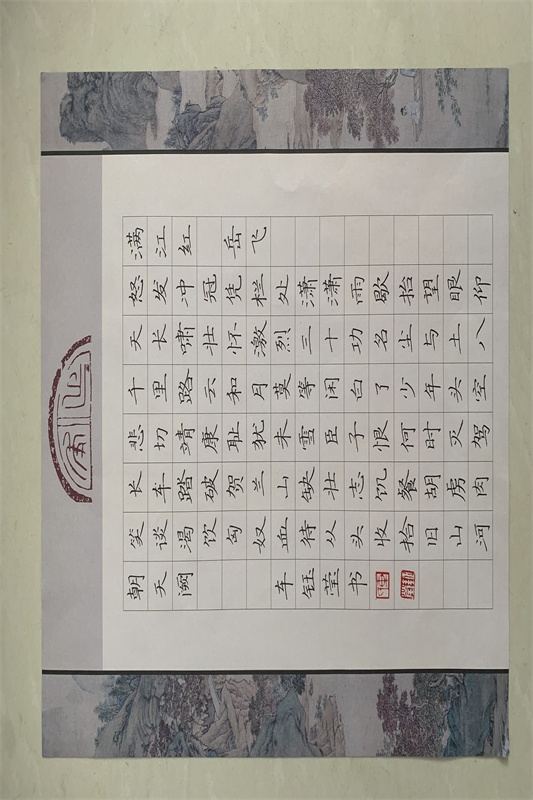 满江红 岳飞
怒发冲冠凭栏处潇潇雨歇抬望眼仰
天长啸壮怀激烈三十功名尘与土八
千里路云和月莫等闲白了少年头空
悲切靖康耻犹未雪臣子恨何时灭驾
长车踏破贺兰山缺壮志饥餐胡虏肉
笑谈渴饮匈奴血待从头收拾旧山河
朝天阙 车钰莹书